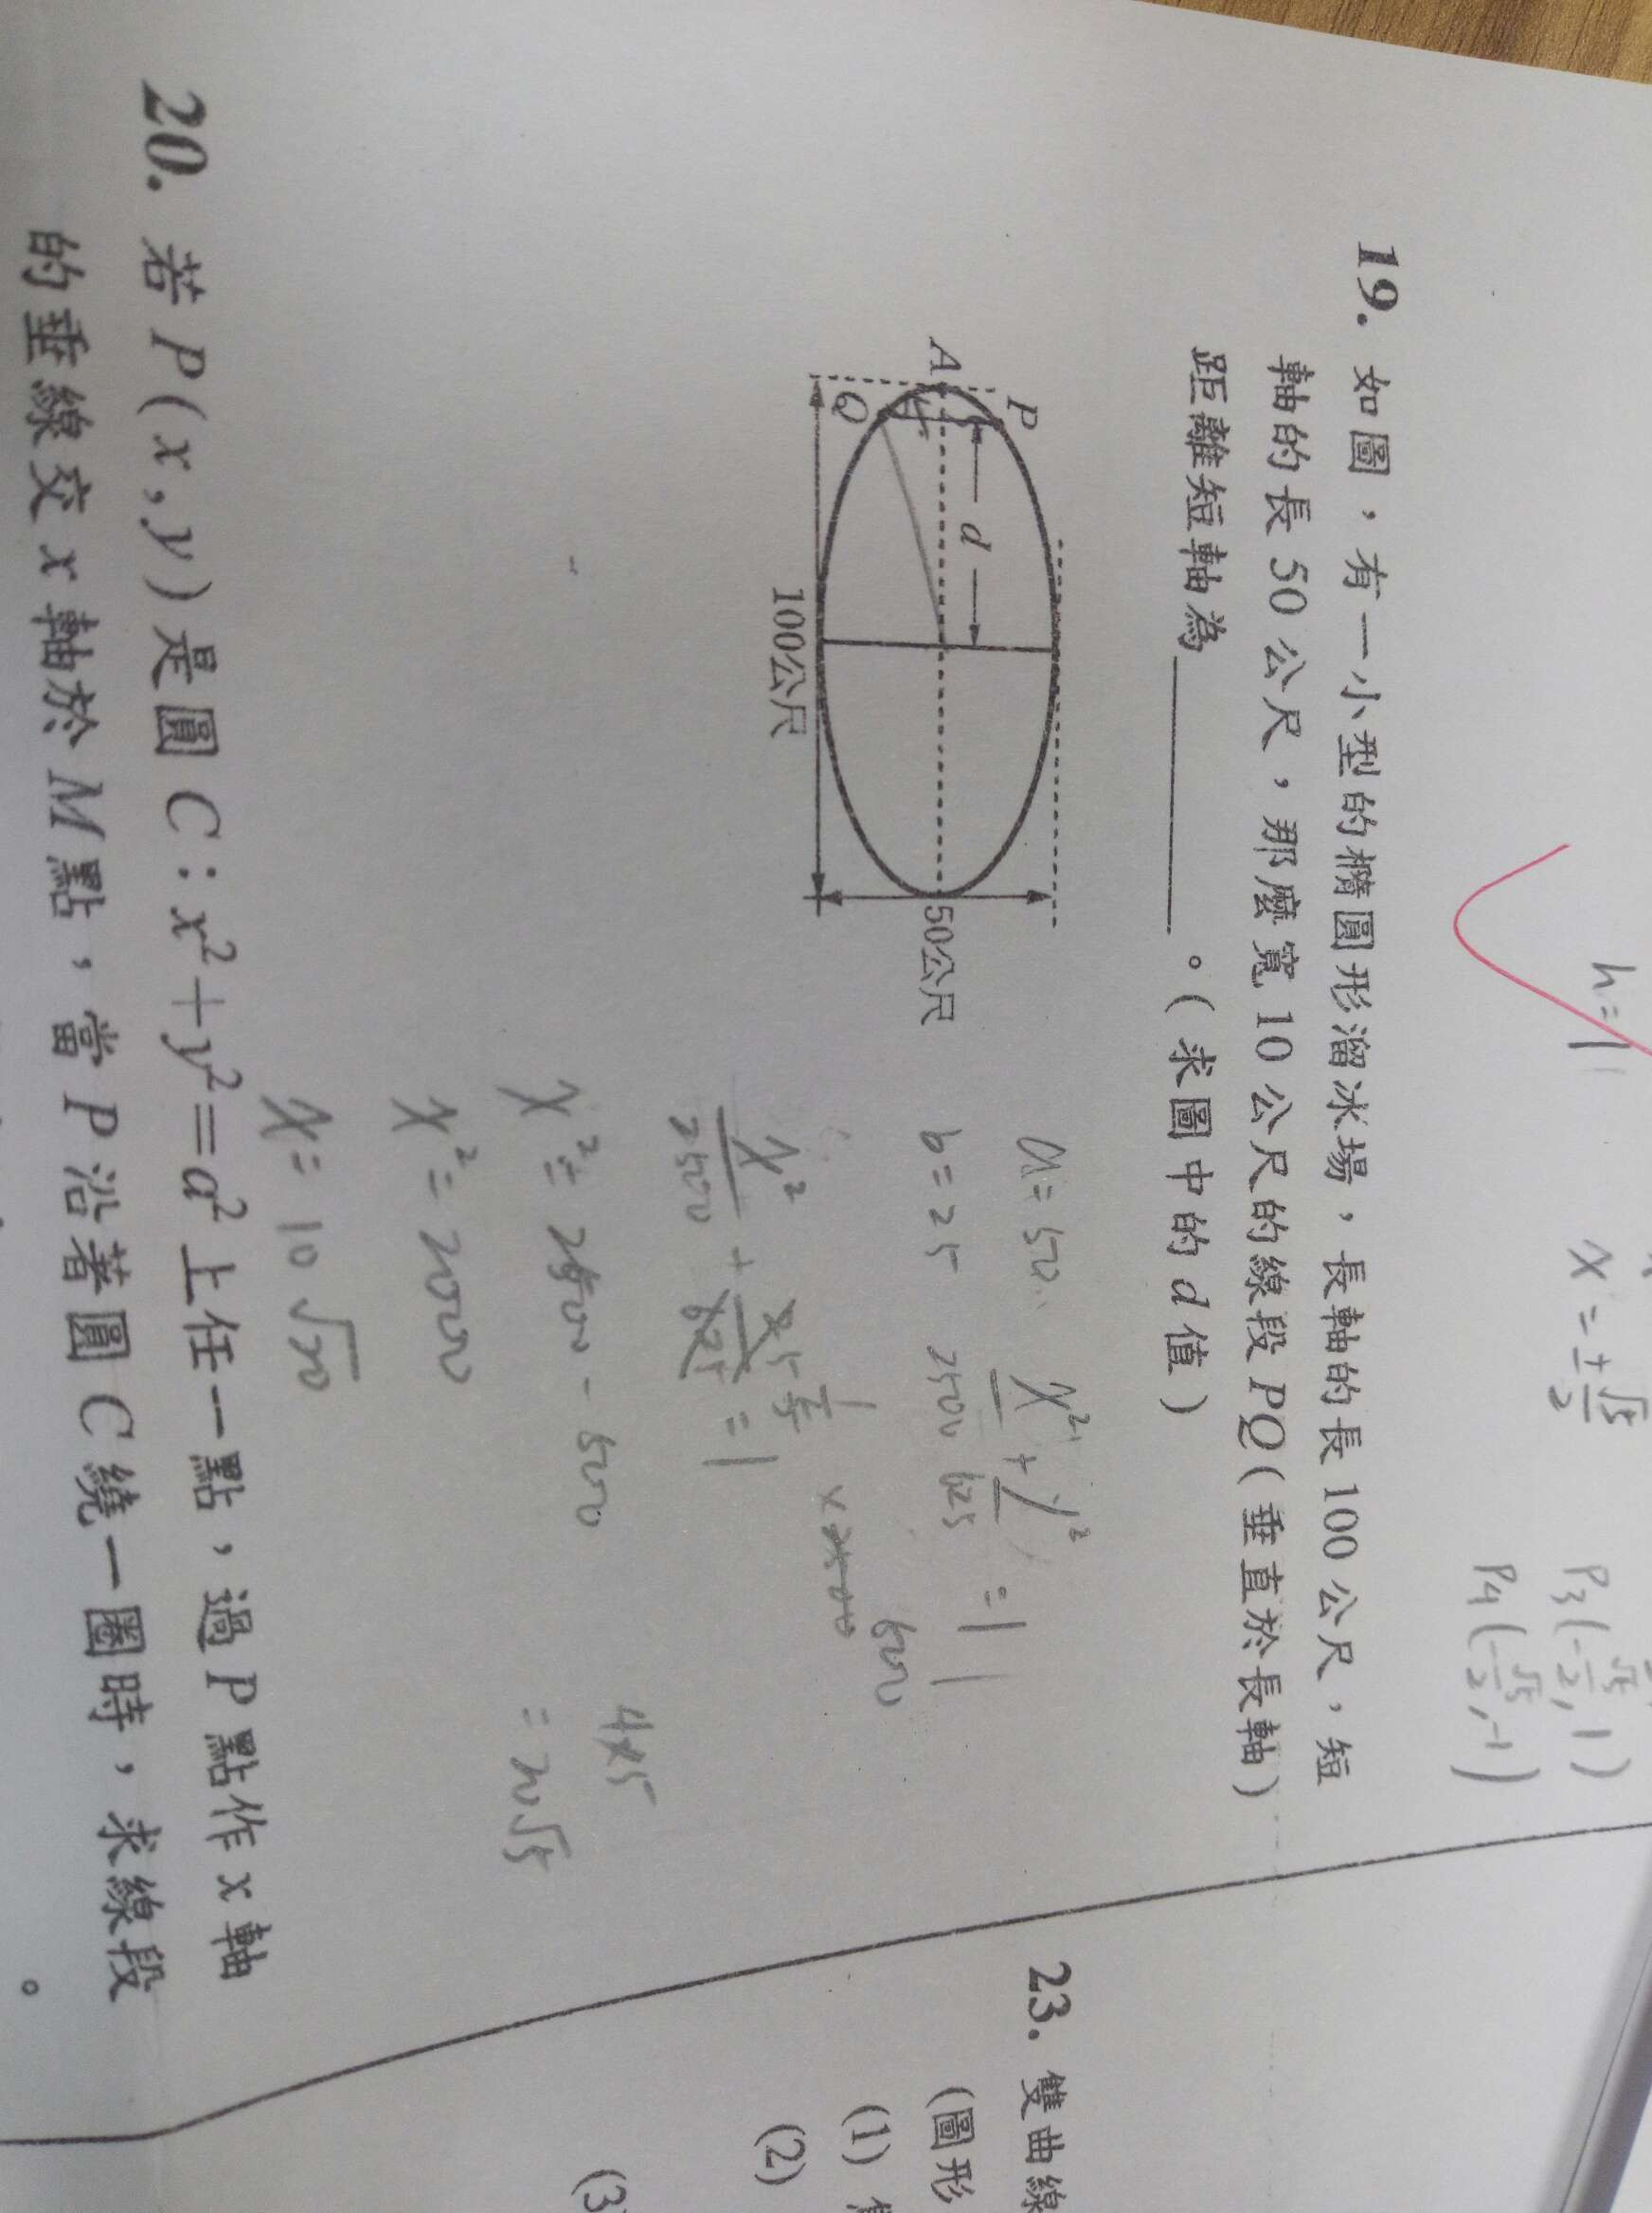 h=1
x = ±√5/2
P3(-√5/2, 1)
P4(-√5/2, -1)
19. 如圖，有一小型的橢圓形溜冰場，長軸的長 100 公尺，短
軸的長 50 公尺，那麼寬 10 公尺的線段 PQ(垂直於長軸)
距離短軸為________。(求圖中的 d 值)
A
P
Q
d
100公尺
50公尺
a=50
b=25
x²/2500 + y²/625 = 1
x²/2500 + 25/625 = 1
x²= 2500 - 500
x²= 2000
x= 10√20
4×5
= 20√5
20. 若 P(x,y)是圓 C：x²+y²=a² 上任一點，過 P 點作 x 軸
的垂線交 x 軸於 M 點，當 P 沿著圓 C 繞一圈時，求線段
23. 雙曲線
(圖形
(1)
(2)
(3)